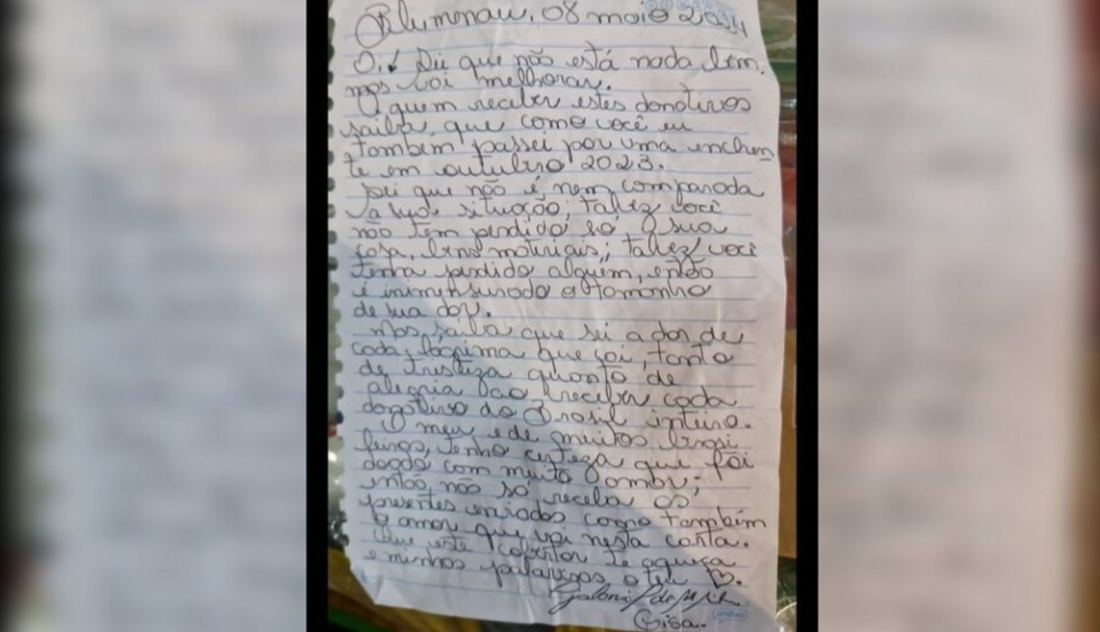 Blumenau, 08 maio 2024
Oi! Sei que não está nada bem,
mas vai melhorar.
A quem receber estes donativos
saiba, que como você eu
também passei por uma enchen
te em outubro 2023.
Sei que não é nem comparada
a sua situação, talvez você
não tem perdido só a sua
casa, bens materiais; talvez você
tenha perdido alguém, então
é inmensurado o tamanho
de sua dor.
Mas, saiba que sei a dor de
cada lágrima que cai, tanto
de tristeza quanto de
alegria ao receber cada
donativo do Brasil inteiro.
O meu e de muitos brasi
leiros, tenho certeza que foi
doado com muito amor;
então não só receba os
presentes enviados como também
o amor que vai nesta carta.
Que este cobertor te aqueça
e minhas palavras, o teu ♡.
Gisa.